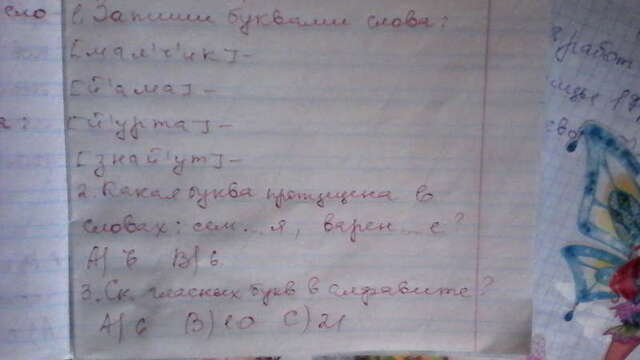 сло
1. Запиши буквами слова:
[мал'ч'ик] -
[й'ама] -
[й'урта] -
[знай'ут] -
2. Какая буква пропущена в
словах: сем...я, варен...е?
А) ъ В) ь
3. Ск. гласных букв в алфавите?
А) 6 В) 10 С) 21
работ